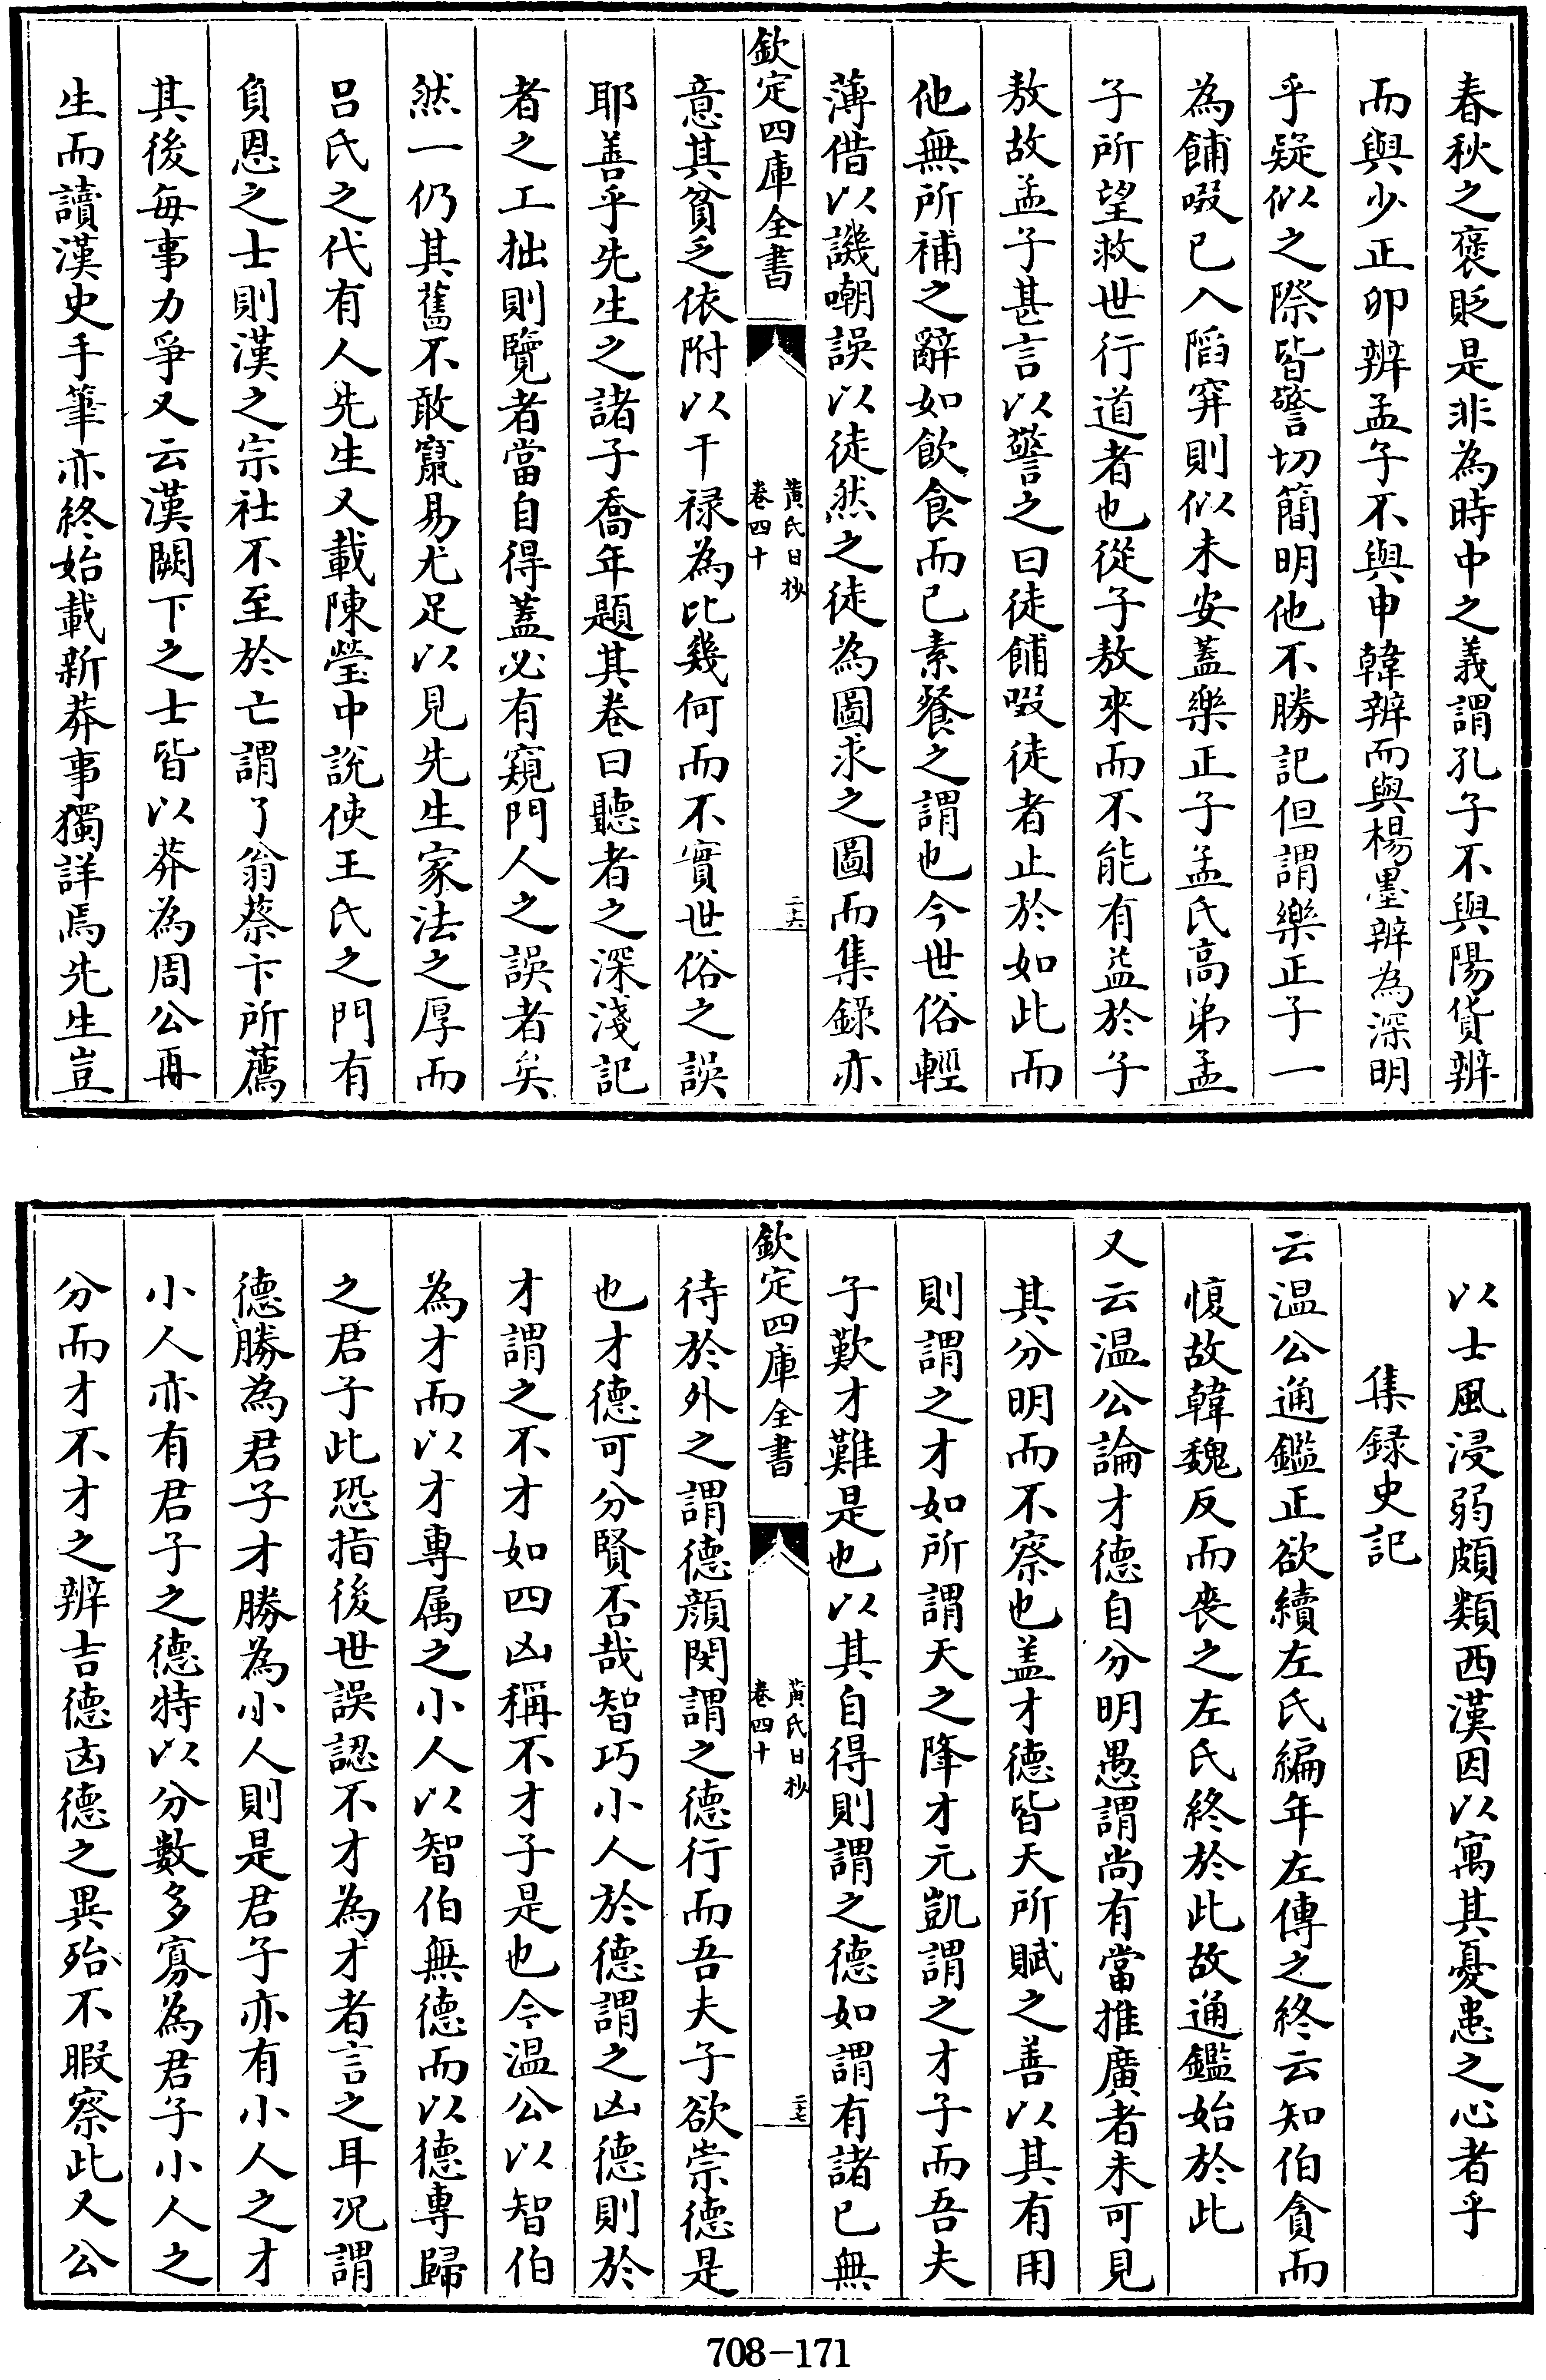 春秋之褒貶是非為時中之義謂孔子不與陽貨辨
而與少正卯辨孟子不與申韓辨而與楊墨辨為深明
乎疑似之際皆警切簡明他不勝記但謂樂正子一
為餔啜已入陷穽則似未安蓋樂正子孟氏高弟孟
子所望救世行道者也從子敖來而不能有益於子
敖故孟子甚言以警之曰徒餔啜徒者止於如此而
他無所補之辭如飲食而已素餐之謂也今世俗輕
薄借以譏嘲誤以徒然之徒為圖求之圖而集錄亦
欽定四庫全書
黃氏日抄
卷四十
二十六
意其貧乏依附以干祿為比幾何而不實世俗之誤
耶善乎先生之諸子喬年題其卷曰聽者之深淺記
者之工拙則覽者當自得蓋必有窺門人之誤者矣
然一仍其舊不敢竄易尤足以見先生家法之厚而
呂氏之代有人先生又載陳瑩中說使王氏之門有
負恩之士則漢之宗社不至於亡謂了翁蔡卞所薦
其後每事力爭又云漢闕下之士皆以莽為周公再
生而讀漢史手筆亦終始載新莽事獨詳焉先生豈
以士風浸弱頗類西漢因以寓其憂患之心者乎
集録史記
云温公通鑑正欲續左氏編年左傳之終云知伯貪而
愎故韓魏反而喪之左氏終於此故通鑑始於此
又云温公論才德自分明愚謂尚有當推廣者未可見
其分明而不察也盖才德皆天所賦之善以其有用
則謂之才如所謂天之降才元凱謂之才子而吾夫
子歎才難是也以其自得則謂之德如謂有諸已無
欽定四庫全書
黃氏日抄
卷四十
二十七
待於外之謂德顔閔謂之德行而吾夫子欲崇德是
也才德可分賢否哉智巧小人於德謂之凶德則於
才謂之不才如四凶稱不才子是也今温公以智伯
為才而以才專属之小人以智伯無德而以德專歸
之君子此恐指後世誤認不才為才者言之耳况謂
德勝為君子才勝為小人則是君子亦有小人之才
小人亦有君子之德特以分數多寡為君子小人之
分而才不才之辨吉德凶德之異殆不暇察此又公
708-171